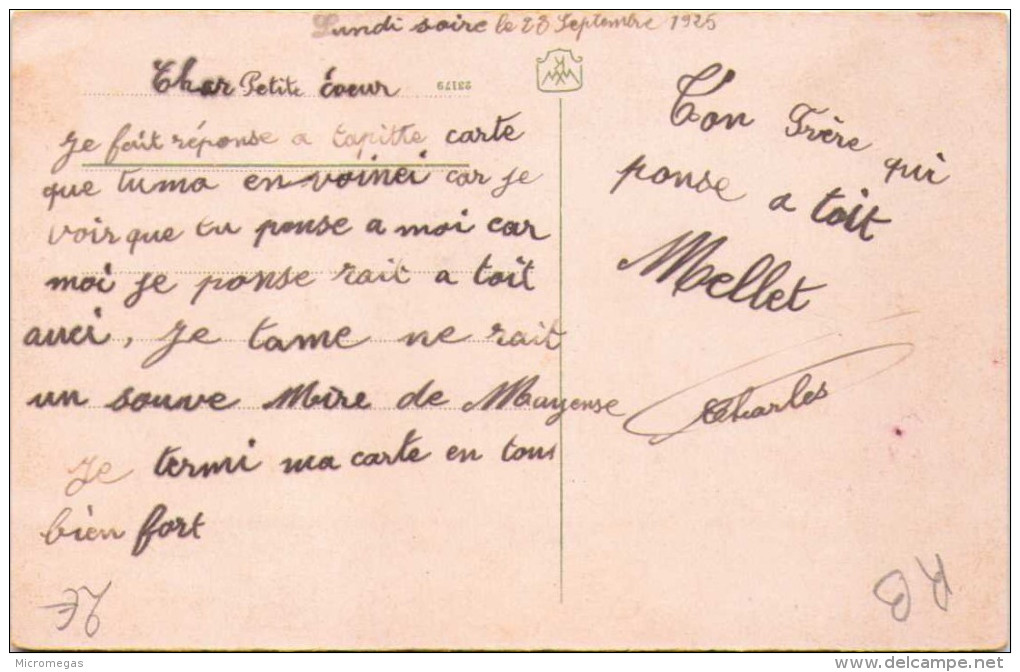 Lundi soire le 28 Septembre 1925
Char Petite coeur
23179
Je fait réponse a tapitte carte
que tuma envoinei car je
voir que tu ponse a moi car
moi je ponse rait a toit
auci, Je tame ne rait
un souve Mire de Mayense
Je termi ma carte en tous
bien fort
Ton Frère qui
ponse a toit
Mellet
Charles
2€
BR
Micromegas
www.delcampe.net